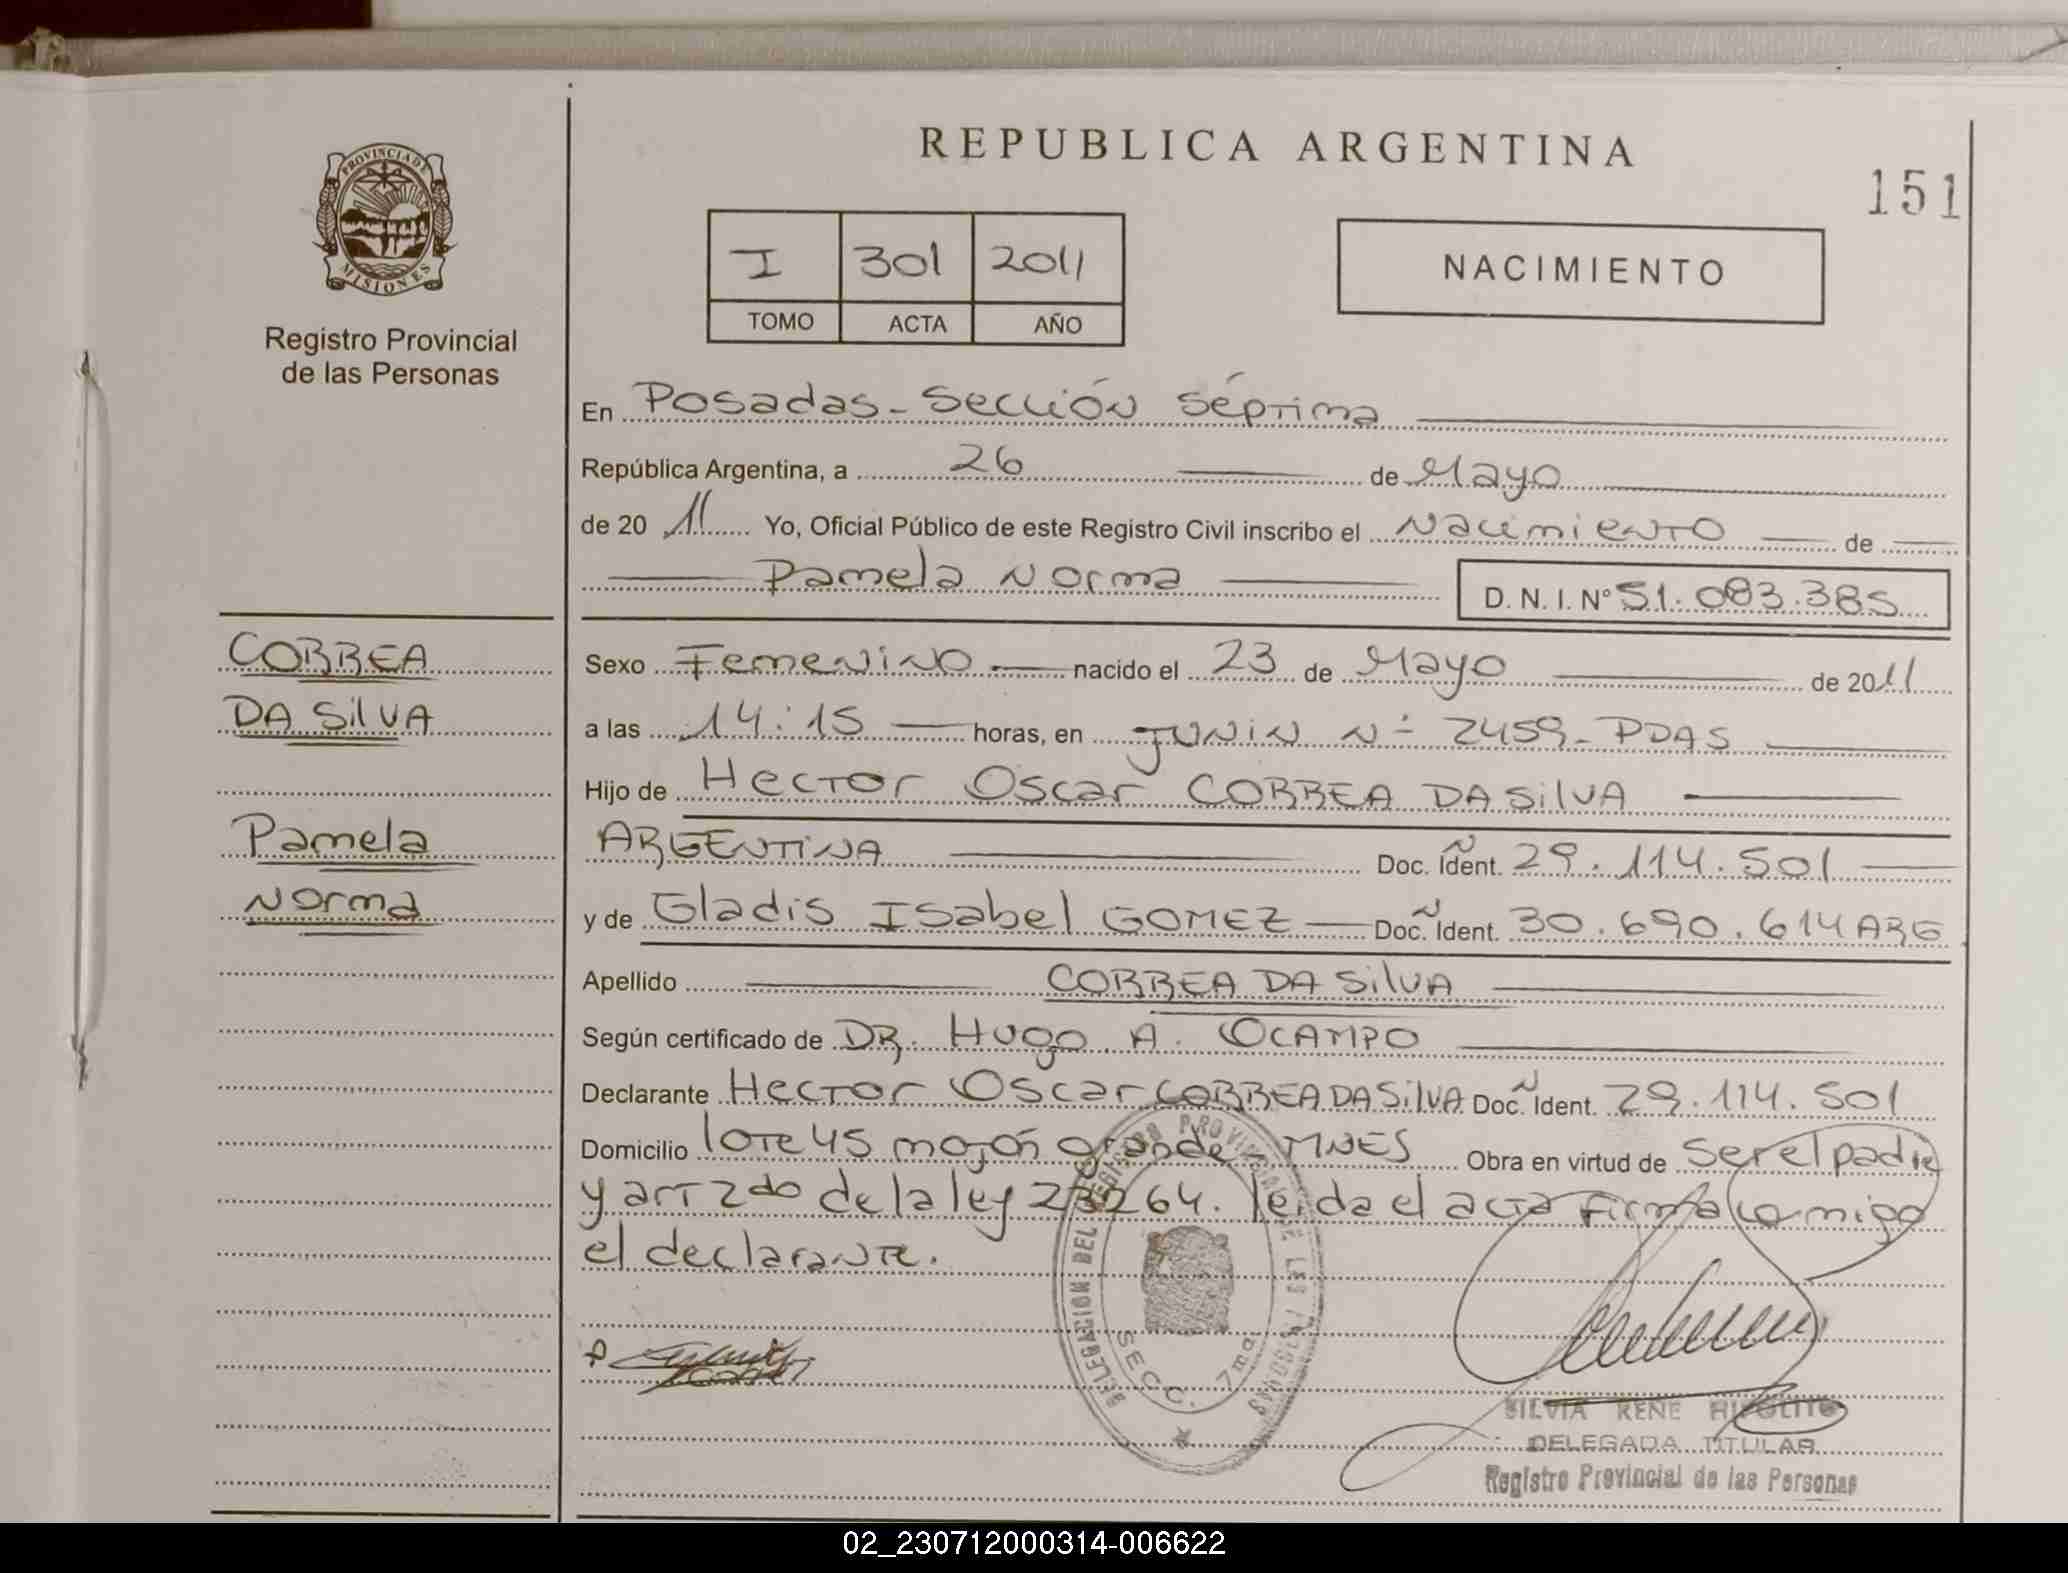 REPUBLICA ARGENTINA
151
PROVINCIA DE
MISIONES
Registro Provincial
de las Personas
I 301 2011
TOMO ACTA AÑO
NACIMIENTO
En Posadas - Sección Séptima
República Argentina, a 26 de Mayo
de 20 11 Yo, Oficial Público de este Registro Civil inscribo el Nacimiento de
Pamela Norma D. N. I. Nº 51.083.385
CORREA
DA SilVA
Pamela
Norma
Sexo Femenino nacido el 23 de Mayo de 2011
a las 14:15 horas, en JUNiN N- 2459 - PDAS
Hijo de Hector Oscar CORREA DA SilVA
ARGENTINA Doc. Ident. 29.114.501
y de Gladis Isabel GOMEZ Doc. Ident. 30.690.614 ARG
Apellido CORREA DA SilVA
Según certificado de DR. HUgo A. OCAMPO
Declarante Hector Oscar CORREA DA SilVA Doc. Ident. 29.114.501
Domicilio lote 45 mojón grande - MNES Obra en virtud de ser el padre
y art 2do de la ley 23264. leida el acta firma comigo
el declarante.
DELEGACION DEL REGISTRO PROVINCIAL DE LAS PERSONAS
SECC. 7ma
SILVIA RENE HIPOLITO
DELEGADA TITULAR
Registro Provincial de las Personas
02_230712000314-006622